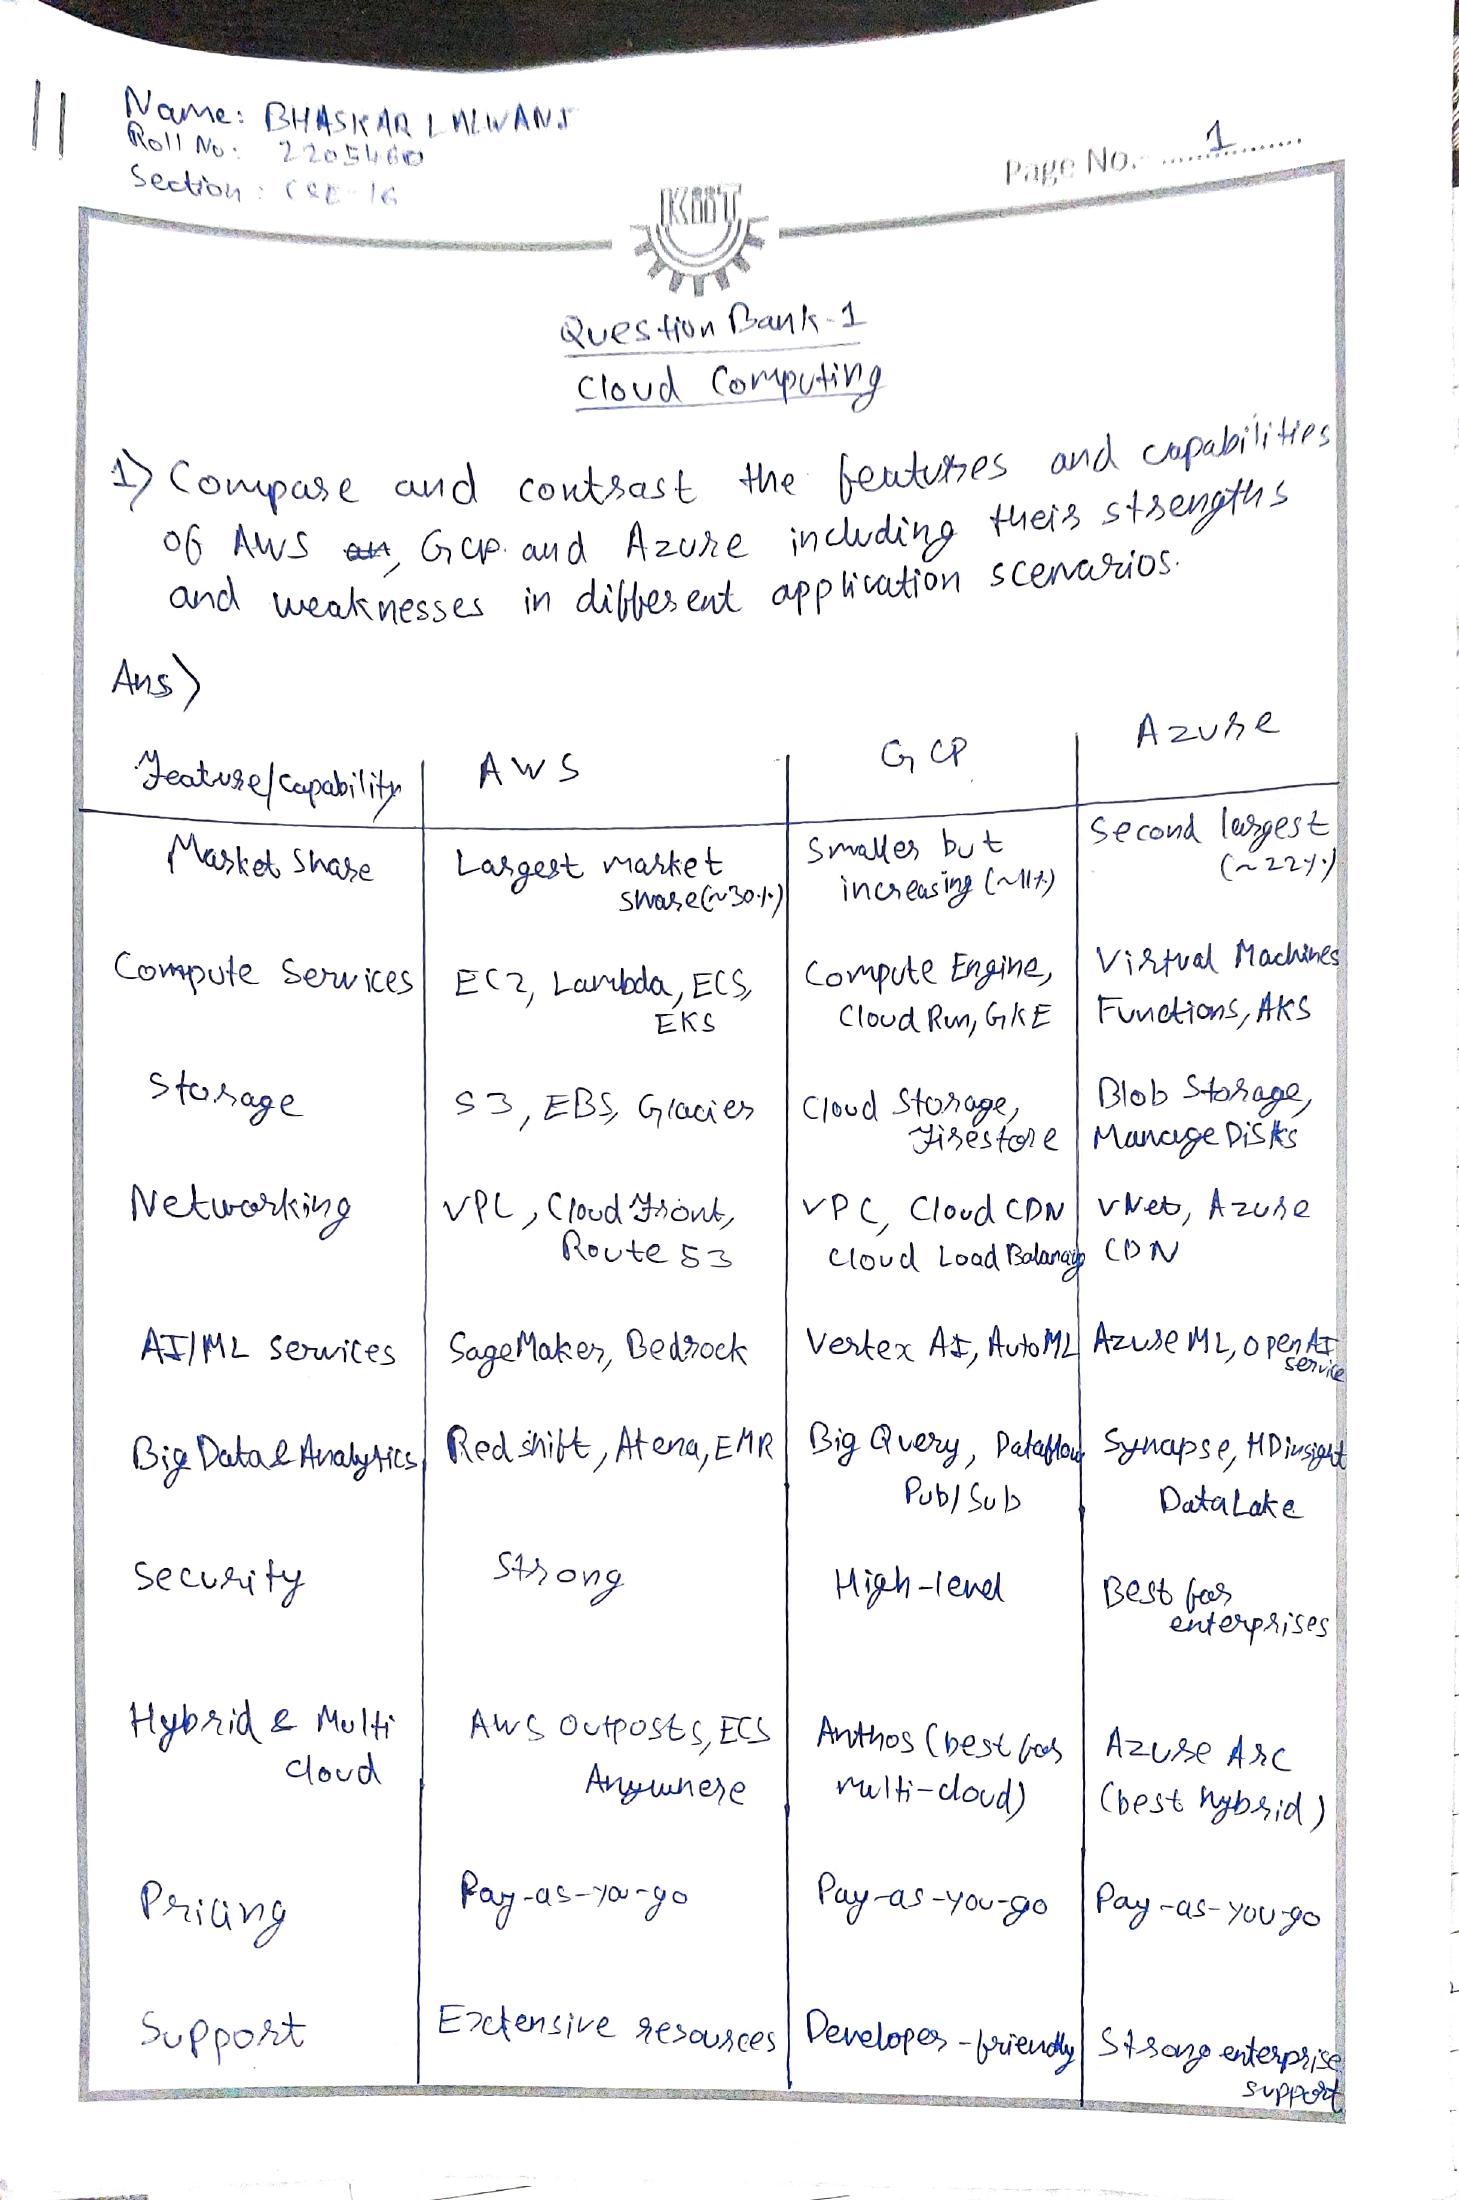 11
Name: BHASKAR LALWANI
Roll No: 2205460
Section: CSE-16
Page No. 1
KIIT
Question Bank-1
Cloud Computing
1) Compare and contrast the features and capabilities
of AWS, GCP and Azure including their strengths
and weaknesses in different application scenarios.
Ans)
Feature/Capability AWS GCP Azure
Market Share Largest market Smaller but Second largest
share(~30%) increasing (~11%) (~22%)
Compute Services EC2, Lambda, ECS, Compute Engine, Virtual Machines
EKS Cloud Run, GKE Functions, AKS
Storage S3, EBS, Glacier Cloud Storage, Blob Storage,
Firestore Manage Disks
Networking VPC, CloudFront, VPC, Cloud CDN VNet, Azure
Route 53 Cloud Load Balancing CDN
AI/ML services SageMaker, Bedrock Vertex AI, AutoML Azure ML, OpenAI
service
Big Data & Analytics Redshift, Atena, EMR Big Query, Dataflow Synapse, HDinsight
Pub/Sub DataLake
Security Strong High-level Best for
enterprises
Hybrid & Multi AWS Outposts, ECS Anthos (best for Azure Arc
cloud Anywhere multi-cloud) (best hybrid)
Pricing Pay-as-you-go Pay-as-you-go Pay-as-you-go
Support Extensive resources Developer-friendly Strong enterprise
support